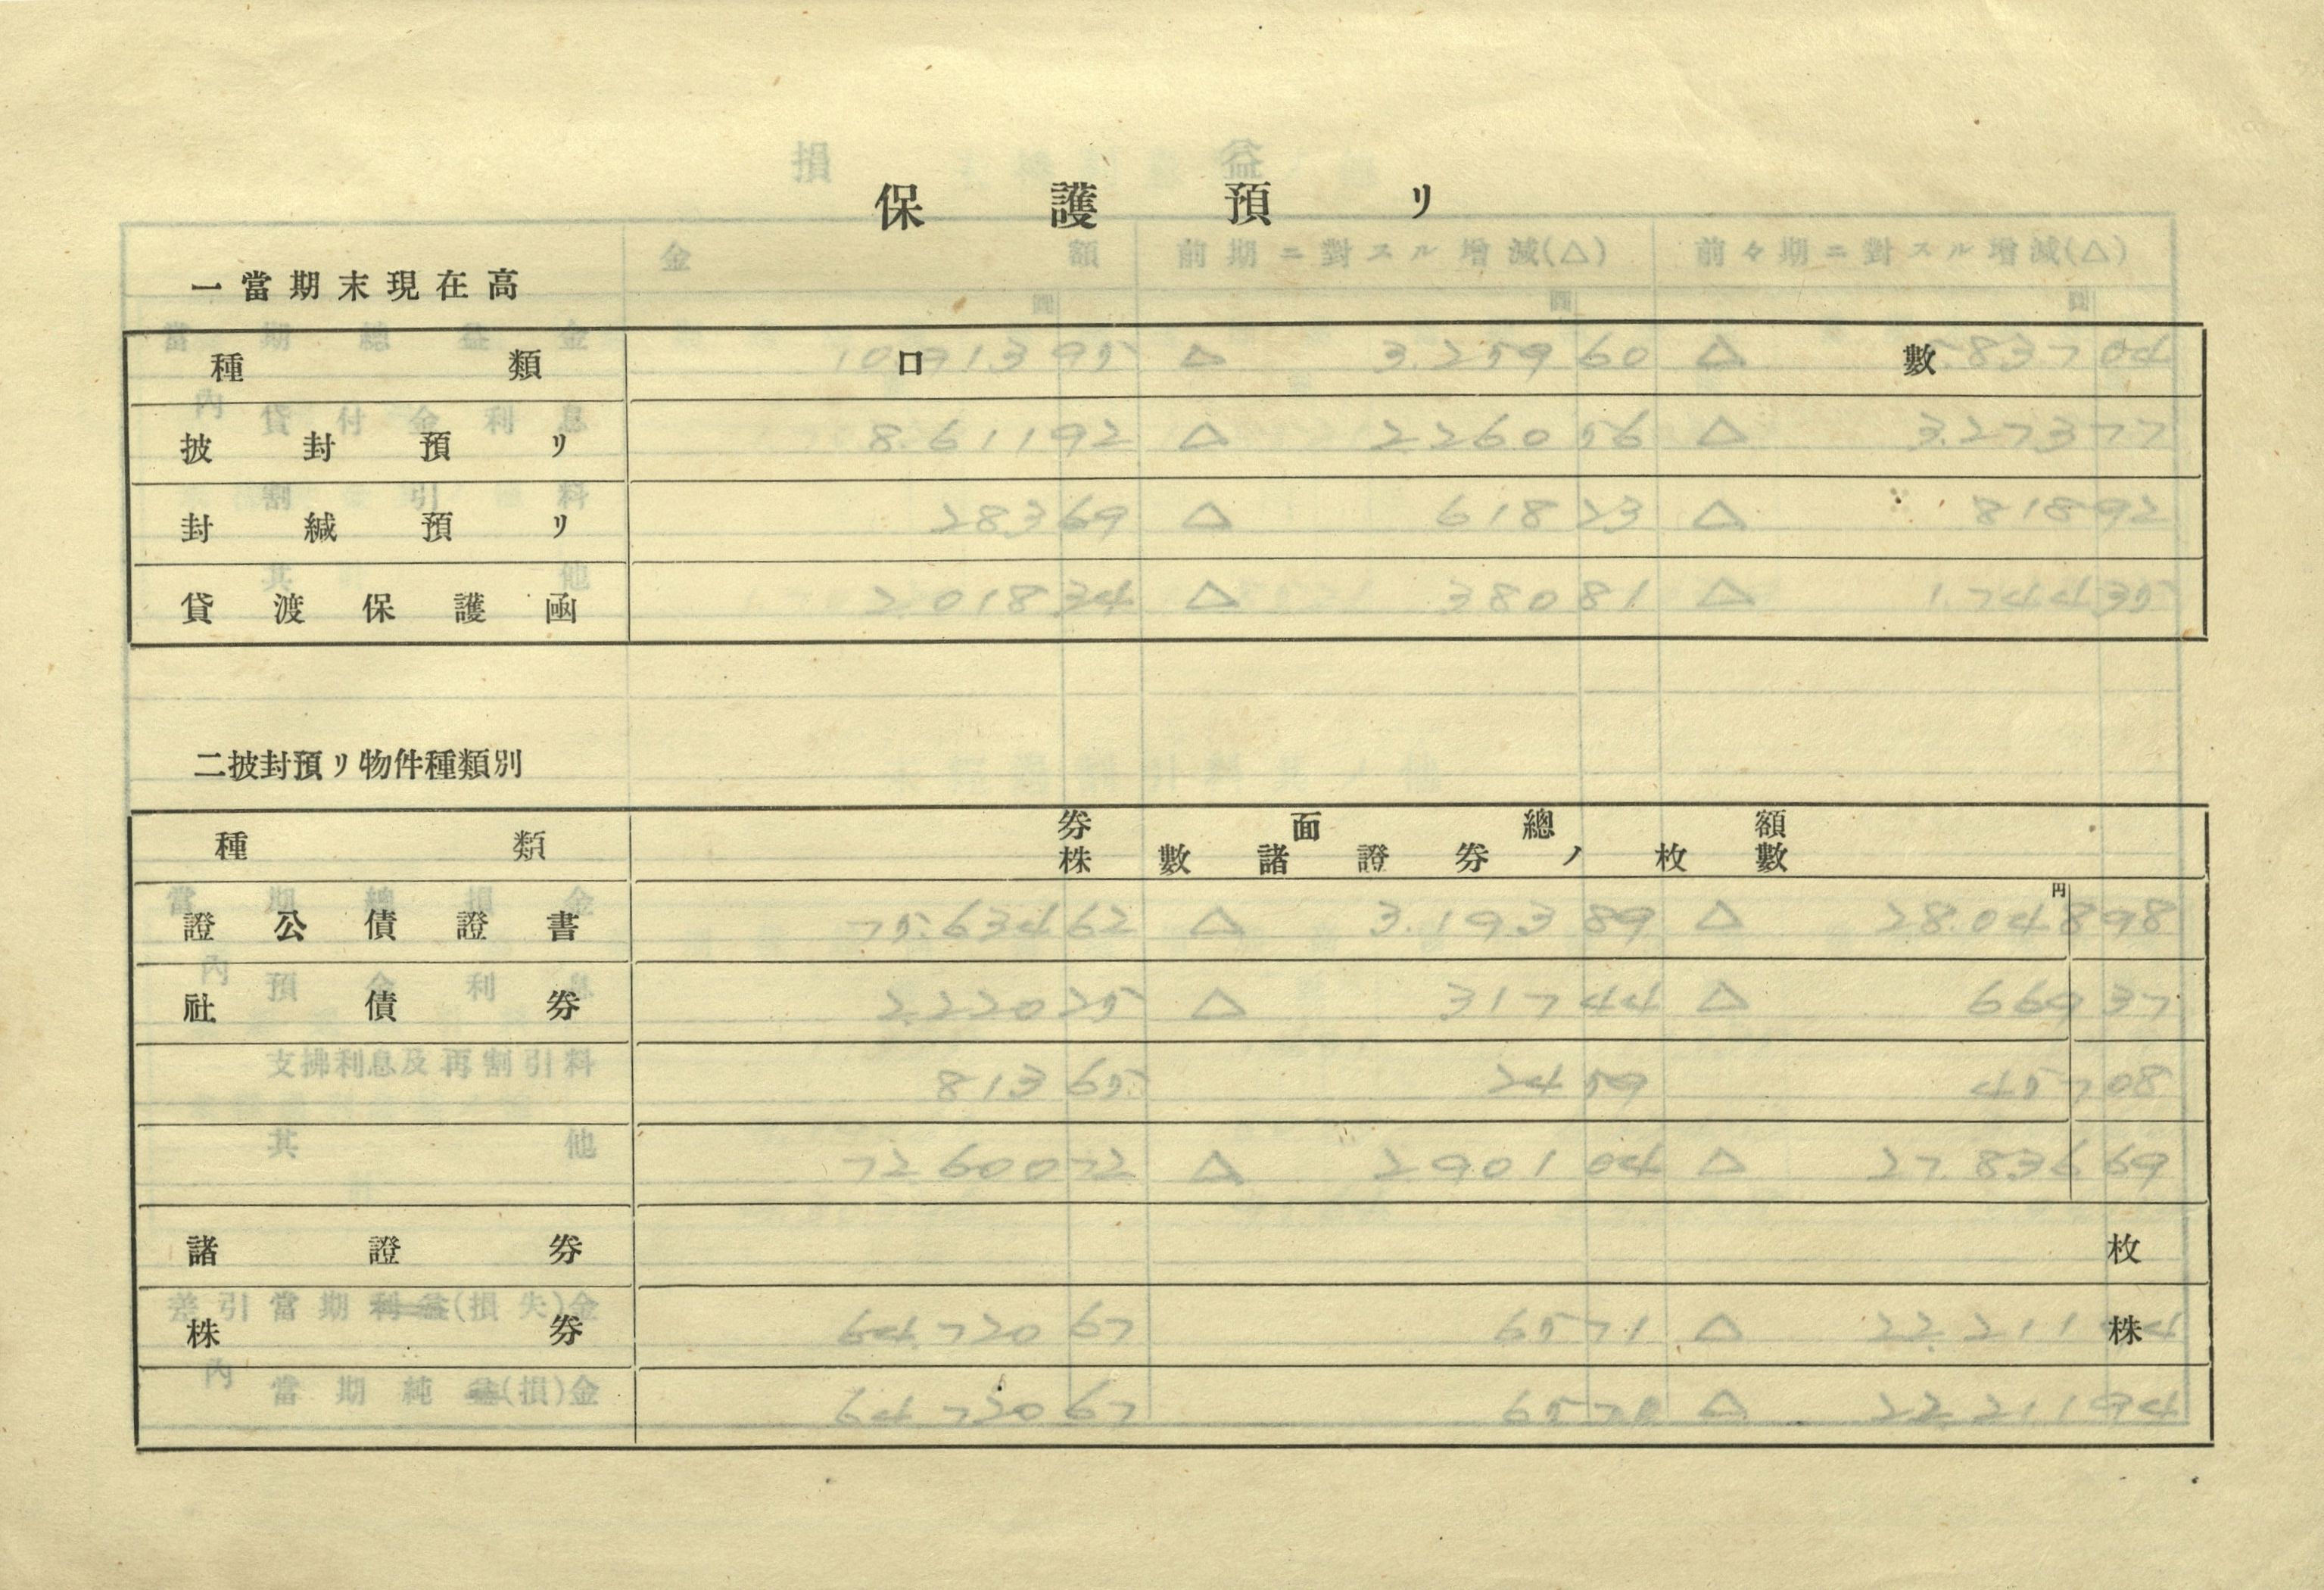 保護預リ
一當期末現在高
種類 口數
披封預リ
封緘預リ
貸渡保護函
二披封預リ物件種類別
種類 券面總額
株數諸證券ノ枚數
證公債證書 円
社債券
諸證券 枚
株券 株
損益
金額 前期ニ對スル增減(△) 前々期ニ對スル增減(△)
圓 圓 圓
當期總益金 10.913 95 △ 3.259 60 △
內 貸付金利息 8.611 92 △ 2260 56 △ 3.273 77
割引料 283 69 △ 618 23 △ 818 92
其他 2018 34 △ 380 81 △ 1.744 35
當期總損金 75.634 62 △ 3.193 89 △ 28.048 98
內 預金利息 2.220 25 △ 317 44 △ 669 37
支拂利息及再割引料 813 65 24 59 457 08
其他 72600 72 △ 2901 04 △ 27.836 69
差引當期利益(損失)金 64.720 67 65 71 △
內 當期純益(損)金 64 720 67 65 71 △ 22.211 94